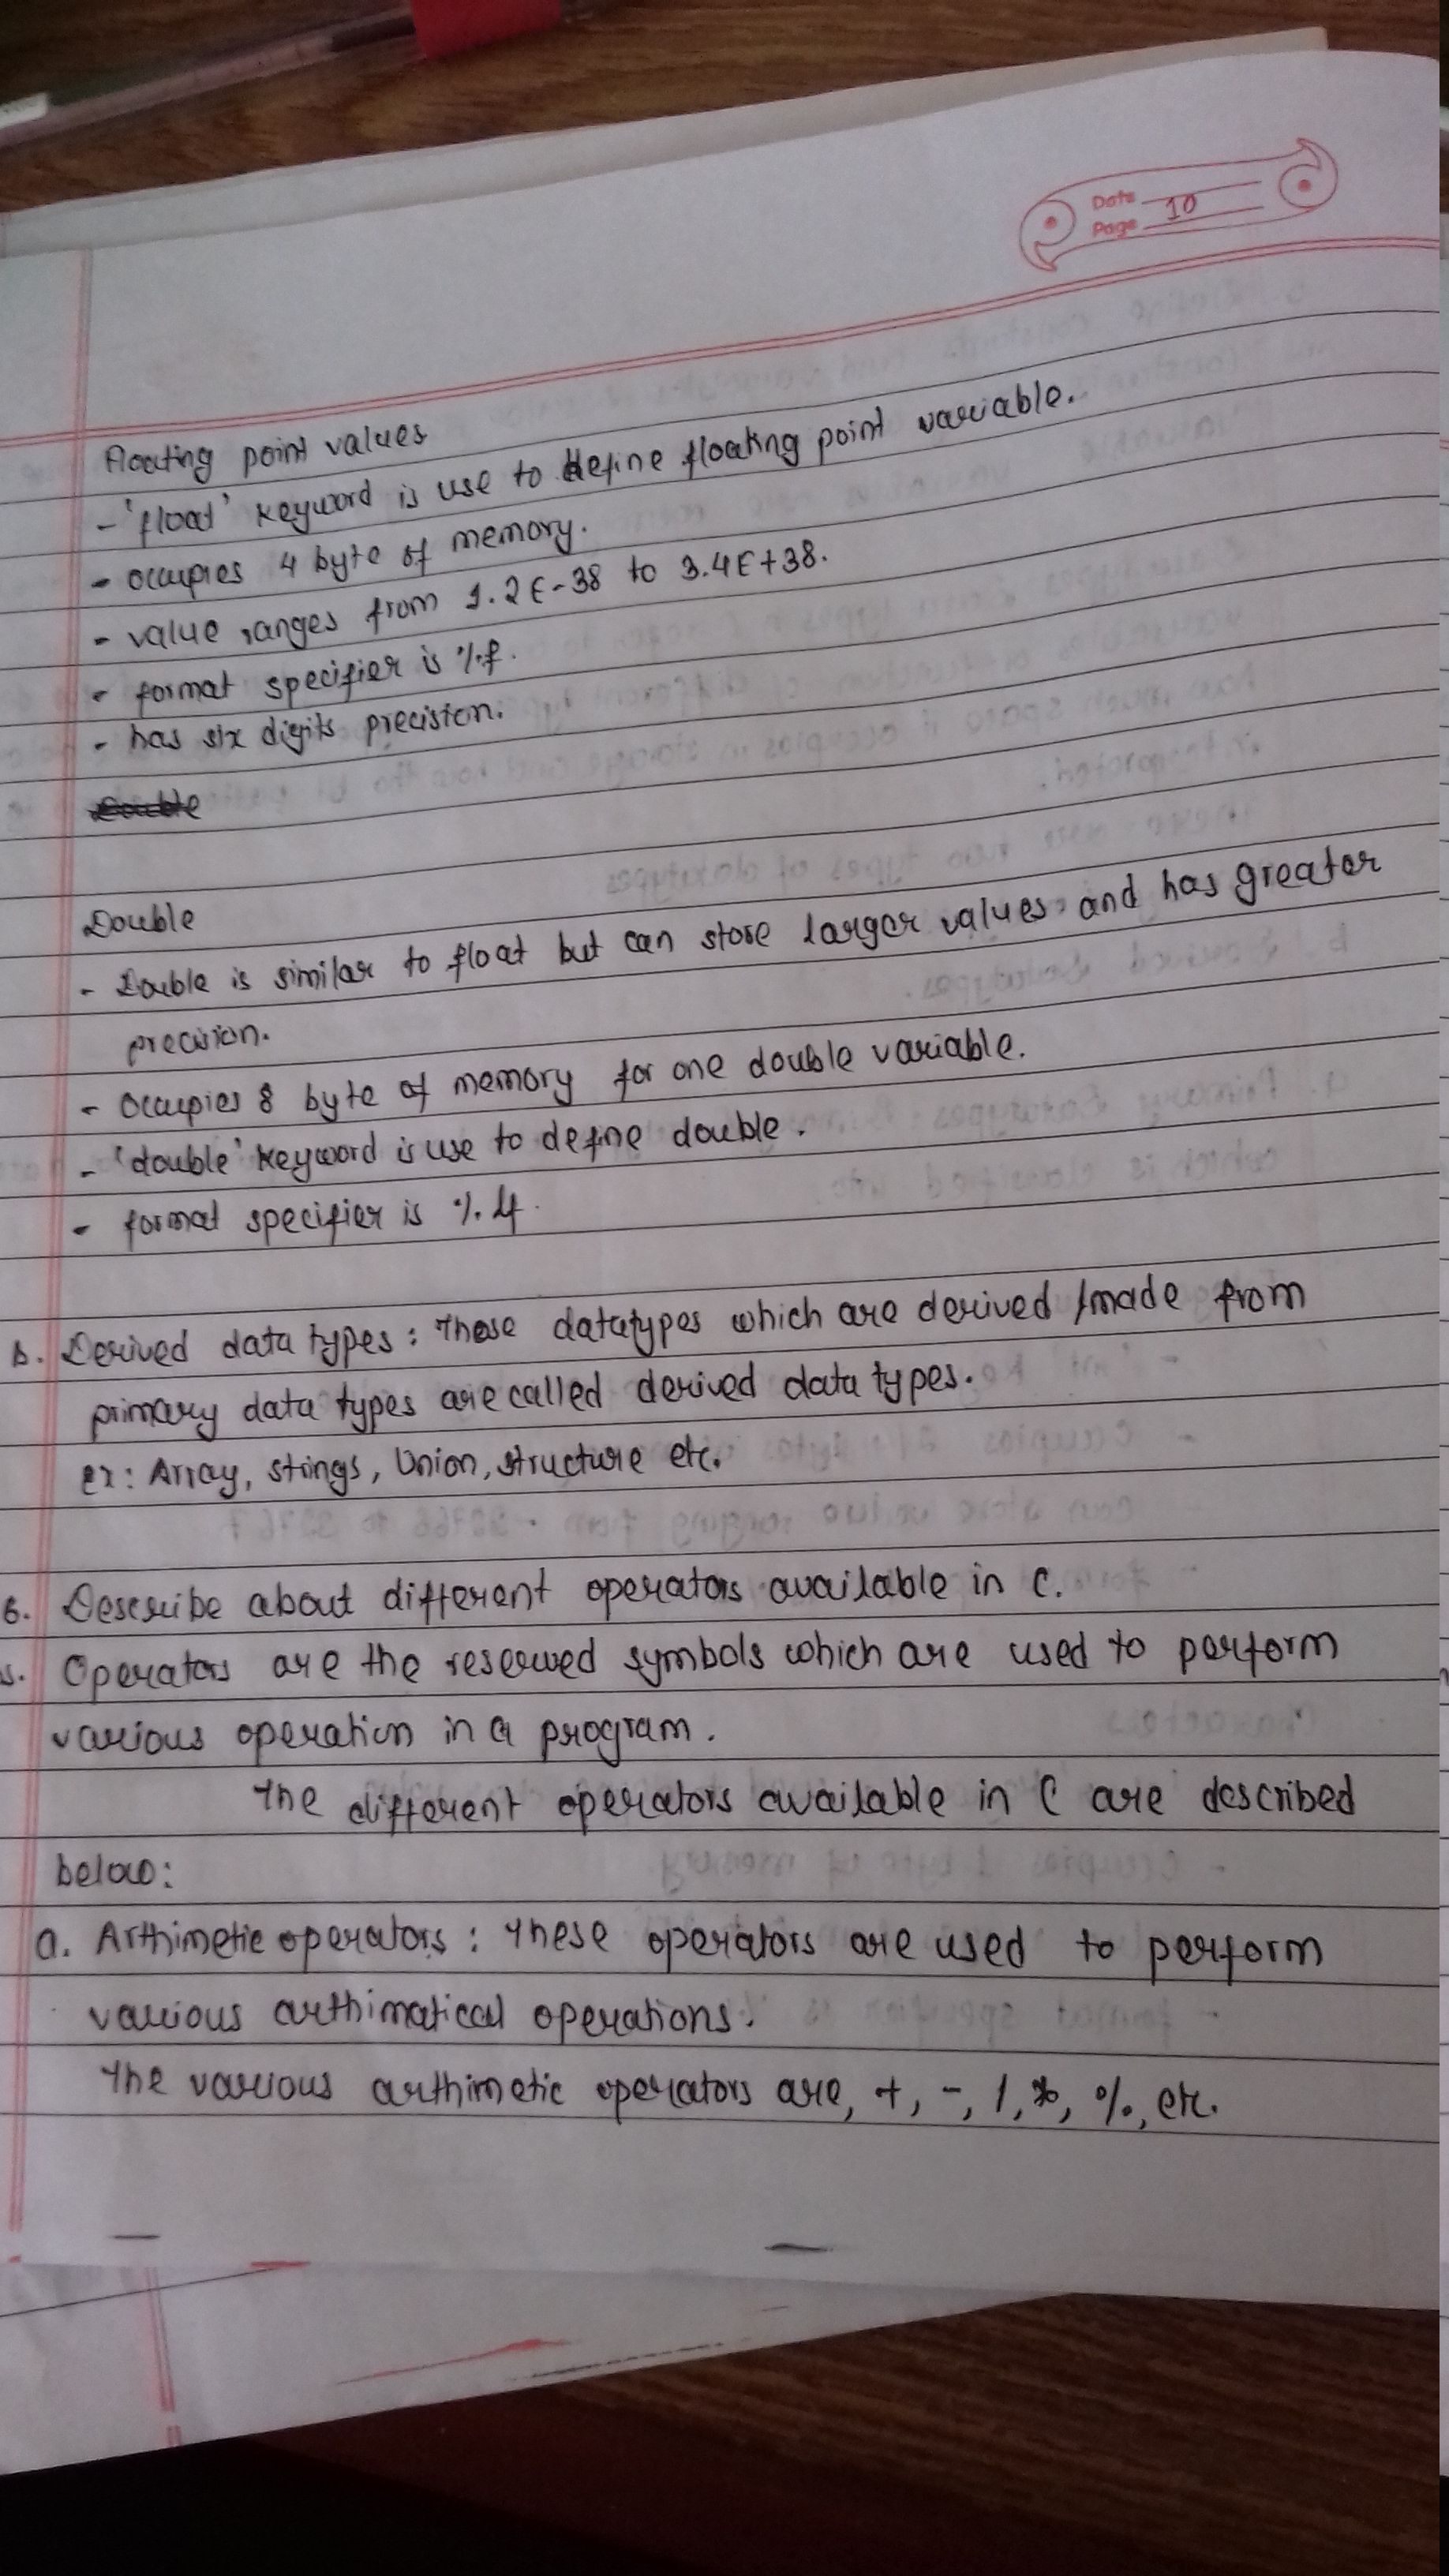 Date
Page 10
floating point values
- 'float' keyword is use to define floating point variable.
- occupies 4 byte of memory.
- value ranges from 1.2E-38 to 3.4E+38.
- format specifier is %f.
- has six digits precision.
Double
Double
- Double is similar to float but can store larger values and has greater
precision.
- Occupies 8 byte of memory for one double variable.
- 'double' keyword is use to define double.
- format specifier is %lf.
b. Derived data types: Those datatypes which are derived /made from
primary data types are called derived data types.
ex: Array, stings, Union, structure etc.
6. Describe about different operators available in C.
s. Operators are the reserved symbols which are used to perform
various operation in a program.
The different operators available in C are described
below:
a. Arthimetic operators: These operators are used to perform
various arthimatical operations.
The various arthimetic operators are, +, -, /, *, %, etc.